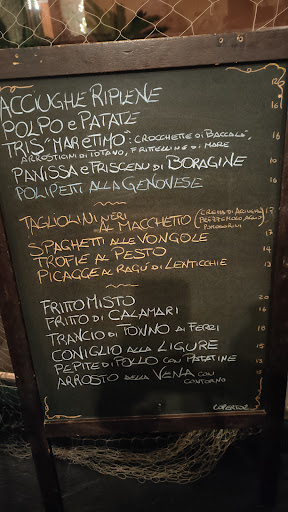 ACCIUGHE RIPIENE 16
POLPO e PATATE
TRIS "MARETIMO": CROCCHETTE DI BACCALÀ, 18
ARROSTICINI DI TOTANO, FRITTELLINE DI MARE
PANISSA e FRISCEAU DI BORAGINE 10
POLIPETTI ALLA GENOVESE 16
TAGLIOLINI NERI AL MACCHETTO (CREMA DI ACCIUGHE, 17
PREZZEMOLO AGLIO
POMODORINI)
SPAGHETTI ALLE VONGOLE 17
TROFIE AL PESTO 14
PICAGGE AL RAGÚ DI LENTICCHIE 13
FRITTO MISTO 20
FRITTO DI CALAMARI 16
TRANCIO DI TONNO AI FERRI 18
CONIGLIO ALLA LIGURE 15
PEPITE DI POLLO CON PATATINE
ARROSTO DELLA VENA CON
CONTORNO
COPERTO 2